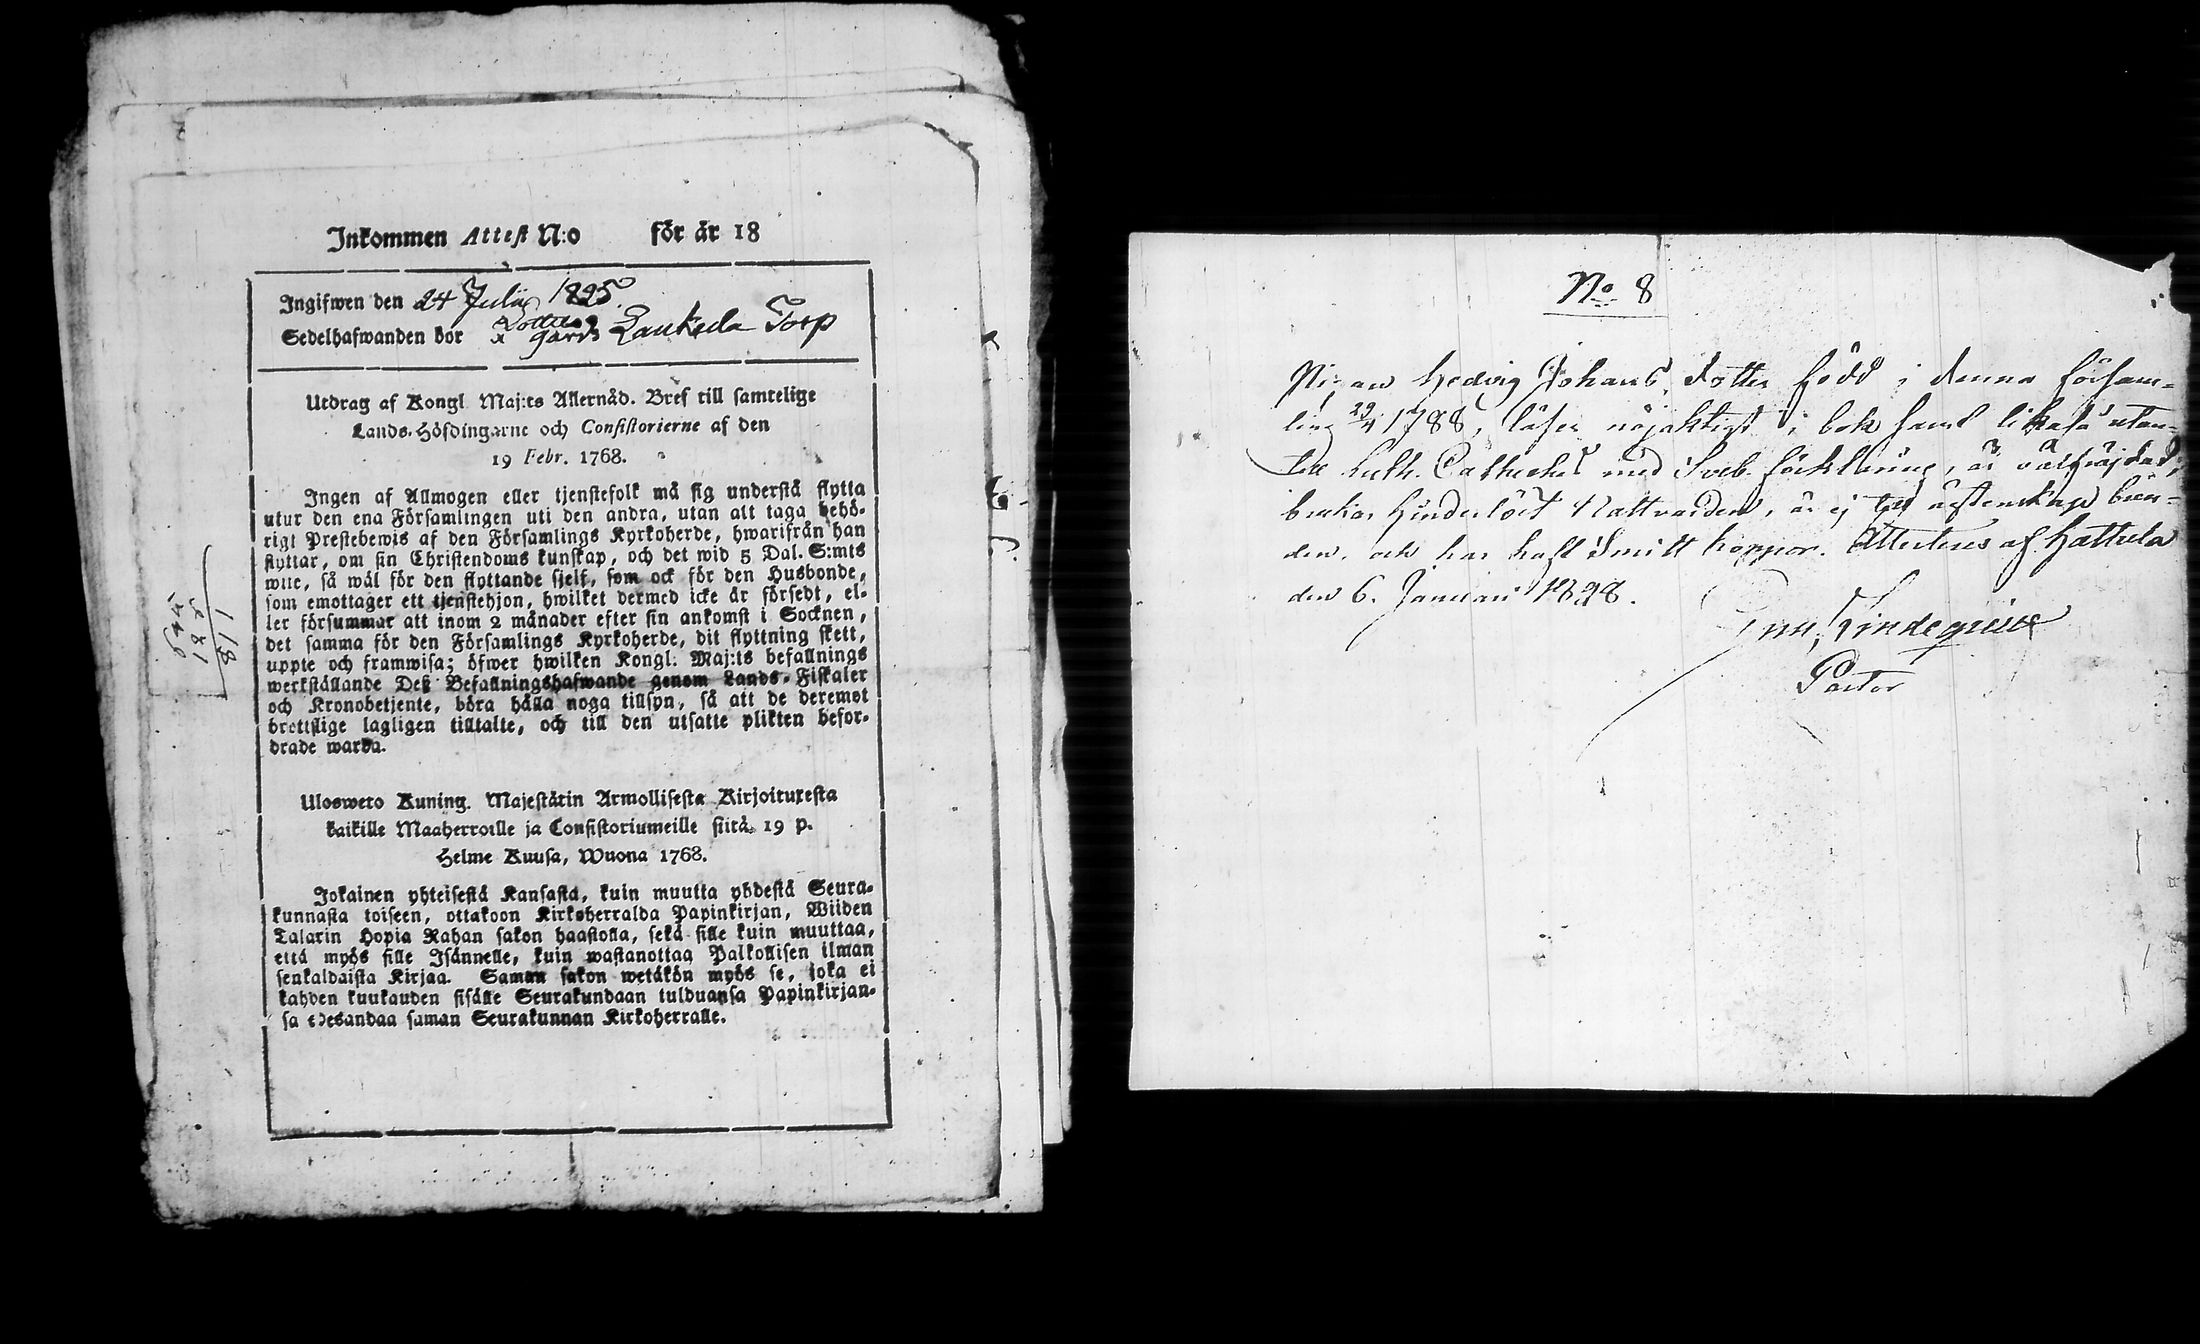 Inkommen Attest N:o för år 18
Ingifwen den 24 Julii 1825.
Sedelhafwanden bor
gårds Laukula Torp
Utdrag af Kongl Maj:ts Allernåd. Bref till samtelige
Lands-Höfdingarne och Consistorierne af den
19 Febr. 1768.
Ingen af Allmogen eller tjenstefolk må sig understå flytta
utur den ena Församlingen uti den andra, utan alt taga behö-
rigt Prestebewis af den Församlings Kyrkoherde, hwarifrån han
flyttar, om sin Christendoms kunskap, och det wid 5 Dal. S:mts
wite, så wäl för den flyttande sjelf, som ock för den Husbonde,
som emottager ett tjenstehjon, hwilket dermed icke är försedt, el-
ler försummar att inom 2 månader efter sin ankomst i Socknen,
det samma för den Församlings Kyrkoherde, dit flyttning skett,
uppte och framwisa; öfwer hwilken Kongl. Maj:ts befallnings
werkställande Deß Befallningshafwande genom Lands-Fiskaler
och Kronobetjente, böra hålla noga tillsyn, så att de deremot
brottslige lagligen tilltalte, och till den utsatte plikten befor-
drade warda.
Ulosweto Kuning. Majestätin Armollisesta Kirjoituxesta
kaikille Maaherroille ja Consistoriumeille siitä 19 p.
Helme Kuusa, Wuona 1768.
Jokainen yhteisestä Kansasta, kuin muutta yhdestä Seura-
kunnasta toiseen, ottakoon Kirkoherralda Papinkirjan, Wiiden
Talarin Hopia Rahan sakon haastolla, sekä sille kuin muuttaa,
että myös sille Isännelle, kuin wastanottaa Palkollisen ilman
senkaldaista Kirjaa. Saman sakon wetäkön myös se, joka ei
kahden kuukauden sisälle Seurakundaan tulduansa Papinkirjan-
sa edesandaa saman Seurakunnan Kirkoherralle.
118
No 8
Pigan Hedvig Johans dotter född i denna församl-
ling 29/4 1788, läser nöjaktigt i bok samt likaså utan-
till Luth. Catheches med Sveb. förklaring, är välfräjdad,
brukar hinderlöst Nattvarden, är ej till ägtenskap bun-
den, och har haft Smitt koppor. Attesteras af Hattula
den 6. Januari 1828.
Lindequist
Pastor